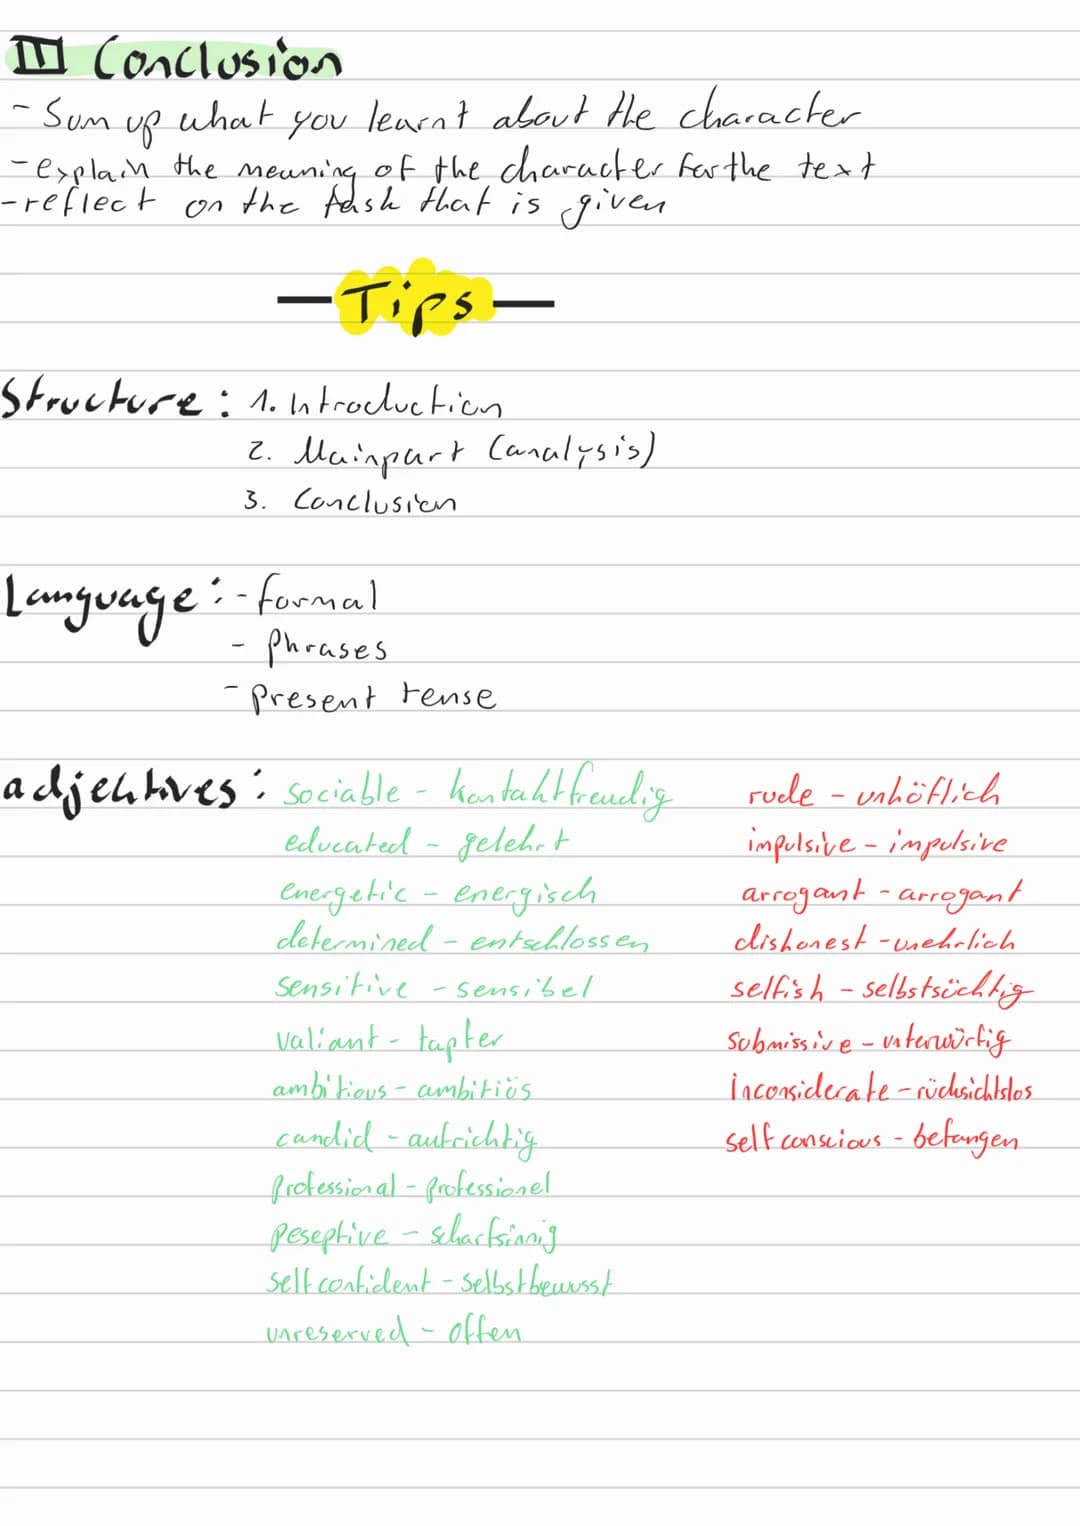 III Conclusion
- Sum up what you learnt about the character
- explain the meaning of the character for the text
- reflect on the task that is given
— Tips —
Structure: 1. Introduction
2. Mainpart (analysis)
3. Conclusion
Language: - formal
- Phrases
- present tense
adjektives: sociable - kontaktfreudig
educated - gelehrt
energetic - energisch
determined - entschlossen
sensitive - sensibel
valiant - tapfer
ambitious - ambitiös
candid - aufrichtig
professional - professionel
peseptive - scharfsinnig
self confident - selbstbewusst
unreserved - offen
rude - unhöflich
impulsive - impulsive
arrogant - arrogant
dishonest - unehrlich
selfish - selbstsüchtig
submissive - unterwürfig
inconsiderate - rücksichtslos
self conscious - befangen